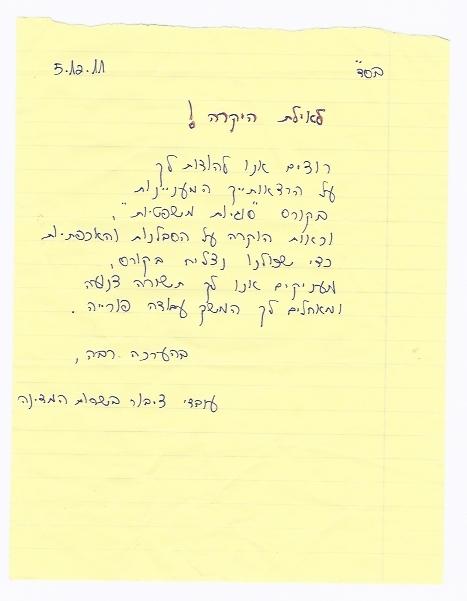 בס"ד
5.12.11
לאילת היקרה!
רוצים אנו להודות לך
על הרצאותייך המעניינות
בקורס "סוגיות משפטיות",
וכאות הוקרה על הסבלנות והאכפתיות
כדי שכולנו נצליח בקורס,
מעניקים אנו לך תשורה צנועה
ומאחלים לך המשך עבודה פורייה.
בהערכה רבה,
עובדי ציבור בשרות המדינה